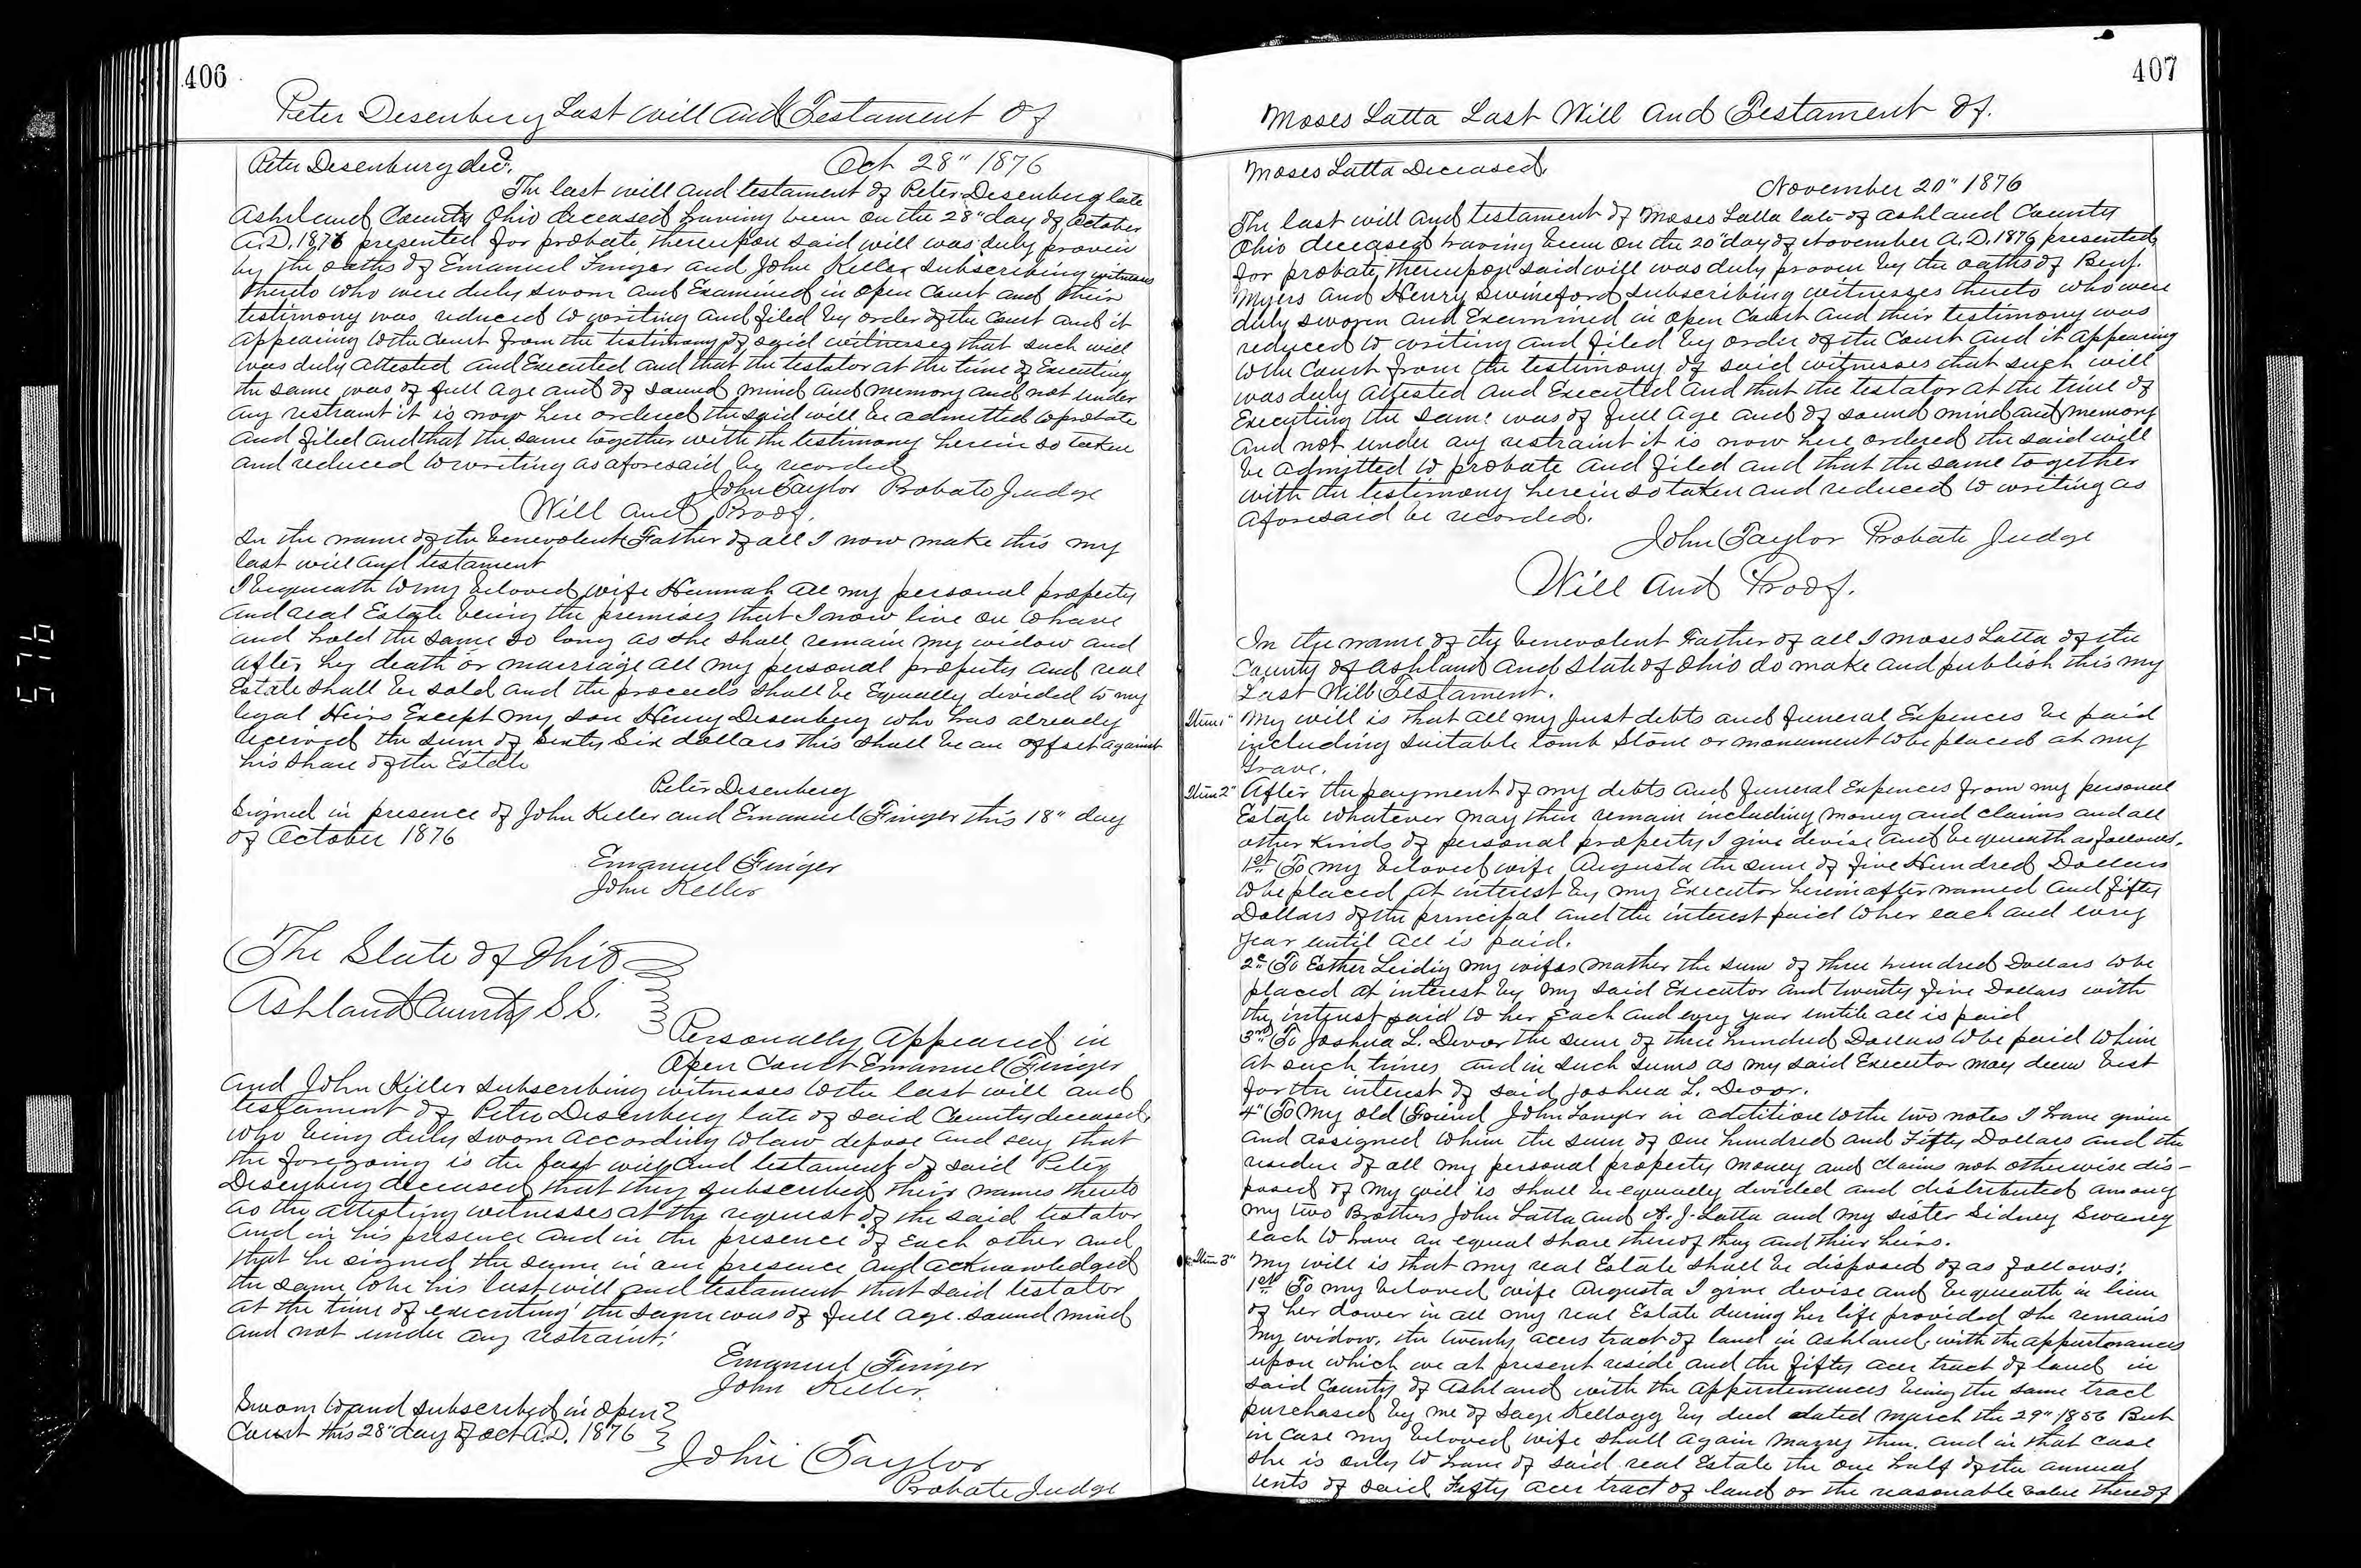 406
Peter Desenberg Last will and Testament Of
Peter Desenburg decd. Oct 28" 1876
The last will and testament of Peter Desenberg late
Ashland County Ohio deceased having been on the 28" day of October
A.D. 1876 presented for probate, thereupon said will was duly proven
by the oaths of Emanuel Finger and John Keller subscribing witnesses
thereto who were duly sworn and Examined in open Court and their
testimony was reduced to writing and filed by order of the Court and it
appearing to the Court from the testimony of said witnesses that such will
was duly attested and Executed and that the testator at the time of Executing
the same was of full age and of sound mind and memory and not under
any restraint it is now here ordered the said will be admitted to probate
and filed and that the same together with the testimony herein so taken
and reduced to writing as aforesaid be recorded
John Taylor Probate Judge
Will and Proof.
In the name of the benevolent Father of all I now make this my
last will and testament
I bequeath to my beloved wife Hannah all my personal property
and real Estate being the premises that I now live on to have
and hold the same so long as she shall remain my widow and
after her death or marriage all my personal property and real
Estate shall be sold and the proceeds shall be Equally divided to my
legal Heirs Except my son Henry Desenberg who has already
received the sum of Sixty Six dollars this shall be an offset against
his share of the Estate
Peter Desenberg
Signed in presence of John Keller and Emanuel Finger this 18" day
of October 1876
Emanuel Finger
John Keller
The State of Ohio
Ashland County S.S.
Personally Appeared in
Open Court Emanuel Finger
and John Keller subscribing witnesses to the last will and
testament of Peter Desenberg late of said County deceased,
who being duly sworn according to law depose and say that
the foregoing is the last will and testament of said Peter
Desenberg deceased, that they subscribed their names thereto
as the attesting witnesses at the request of the said testator
and in his presence and in the presence of each other and
that he signed the same in our presence and acknowledged
the same to be his last will and testament that said testator
at the time of executing the same was of full age sound mind
and not under any restraint.
Emanuel Finger
John Keller.
Sworn to and subscribed in open
Court this 28" day of Oct A.D. 1876
John Taylor
Probate Judge
407
Moses Latta Last Will and Testament Of.
Moses Latta Deceased,
November 20" 1876
The last will and testament of Moses Latta late of Ashland County
Ohio deceased having been on the 20" day of November A.D. 1876 presented
for probate, thereupon said will was duly proven by the oaths of Benj.
Myers and Henry Swineford subscribing witnesses thereto who were
duly sworn and Examined in open Court and their testimony was
reduced to writing and filed by order of the Court and it appearing
to the Court from the testimony of said witnesses that such will
was duly attested and Executed and that the testator at the time of
Executing the same was of full age and of sound mind and memory
and not under any restraint it is now here ordered the said will
be admitted to probate and filed and that the same together
with the testimony herein so taken and reduced to writing as
aforesaid be recorded.
John Taylor Probate Judge
Will and Proof.
In the name of the benevolent Father of all I Moses Latta of the
County of Ashland and State of Ohio do make and publish this my
Last Will Testament.
Item 1" My will is that all my Just debts and funeral Expences be paid
including suitable tomb stone or monument to be placed at my
Grave.
Item 2" After the payment of my debts and funeral Expences from my personal
Estate whatever may then remain including money and claims and all
other kinds of personal property I give devise and bequeath as follows.
1st To my beloved wife Augusta the sum of five Hundred Dollars
to be placed at interest by my Executor hereinafter named and fifty
Dollars of the principal and the interest paid to her each and every
year until all is paid.
2" To Esther Leidig my wifes mother the sum of three hundred Dollars to be
placed at interest by my said Executor and twenty five Dollars with
the interest paid to her Each and every year untill all is paid
3rd To Joshua L. Devor the sum of three hundred Dollars to be paid to him
at such times and in such sums as my said Executor may deem best
for the interest of said Joshua L. Devor.
4" To My old Friend John Sanger in addition to the two notes I have given
and assigned to him the sum of One hundred and Fifty Dollars and the
residue of all my personal property money and claims not otherwise dis-
posed of my will is shall be equally divided and distributed among
my two Brothers John Latta and A. J. Latta and my sister Sidney Swaney
each to have an equal share thereof they and their heirs.
Item 3" My will is that my real Estate shall be disposed of as follows:
1st To my beloved wife Augusta I give devise and bequeath in lieu
of her dower in all my real Estate during her life provided she remains
my widow, the twenty acers tract of land in Ashland, with the appurtenances
upon which we at present reside and the fifty acer tract of land in
said County of Ashland with the appurtenances being the same tract
purchased by me of Sage Kellogg by deed dated March the 29" 1856 But
in case my beloved wife shall again marry then, and in that case
she is only to have of said real Estate the one half of the annual
rents of said Fifty acer tract of land or the reasonable value thereof